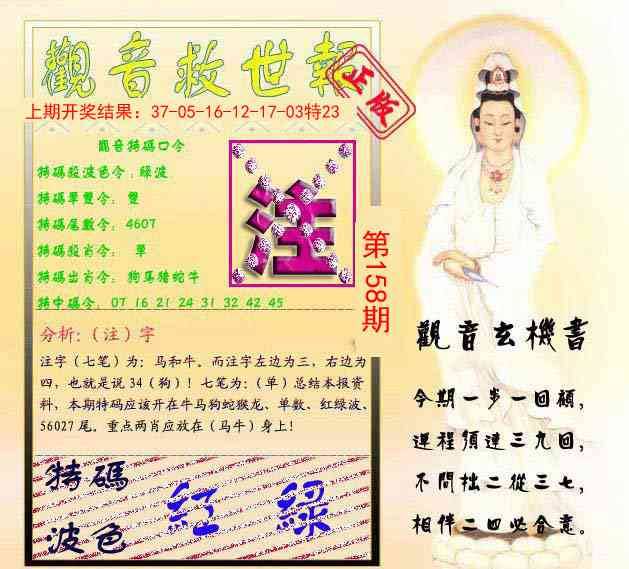 觀音救世報
正版
上期开奖结果：37-05-16-12-17-03特23
觀音特碼口令
特碼殺波色令：綠波
特碼單雙令： 雙
特碼尾數令： 4607
特碼殺肖令： 單
特碼出肖令： 狗馬猪蛇牛
特中碼令： 07 16 21 24 31 32 42 45
注
第158期
分析:（注）字
注字（七笔）为：马和牛。而注字左边为三，右边为
四，也就是说 34（狗）！七笔为：（单）总结本报资
料，本期特码应该开在牛马狗蛇猴龙、单数、红绿波、
56027 尾。重点两肖应放在（马牛）身上！
特碼
波色
紅 綠
觀音玄機書
今期一步一回顧，
運程須達三九回，
不問拙二從三七，
相伴二四必合意。